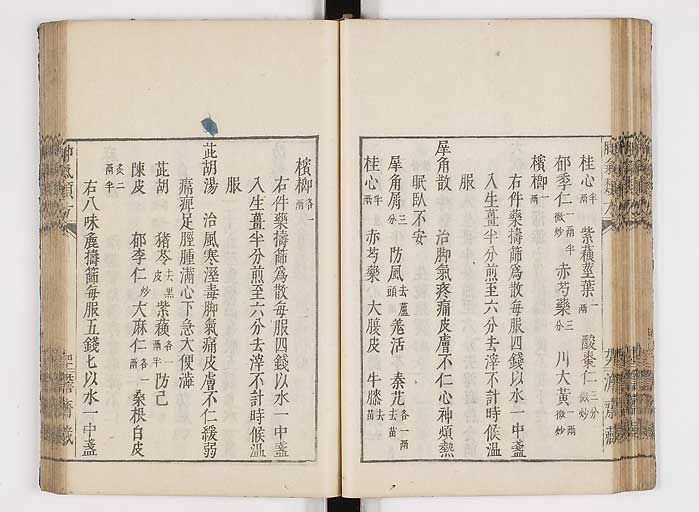 桂心半兩 紫蘇莖葉一兩 酸棗仁三分微炒
郁李仁一兩半微炒 赤芍藥三分 川大黃一兩微炒
檳榔一兩
右件藥擣篩爲散每服四錢以水一中盞
入生薑半分煎至六分去滓不計時候温
服
犀角散 治脚氣疼痛皮膚不仁心神煩熱
眠臥不安
犀角屑三分 防風去蘆頭 羌活 秦艽去苗各一兩
桂心半兩 赤芍藥 大腹皮 牛膝去苗
檳榔各一兩
右件藥擣篩爲散每服四錢以水一中盞
入生薑半分煎至六分去滓不計時候温
服
茈胡湯 治風寒溼毒脚氣痛皮膚不仁緩弱
㾓痹足脛腫滿心下急大便澁
茈胡 豬苓去黑皮 紫蘇各一兩半 防己
陳皮 郁李仁炒 大麻仁各一兩 桑根白皮
炙二兩
右八味麄擣篩每服五錢匕以水一中盞